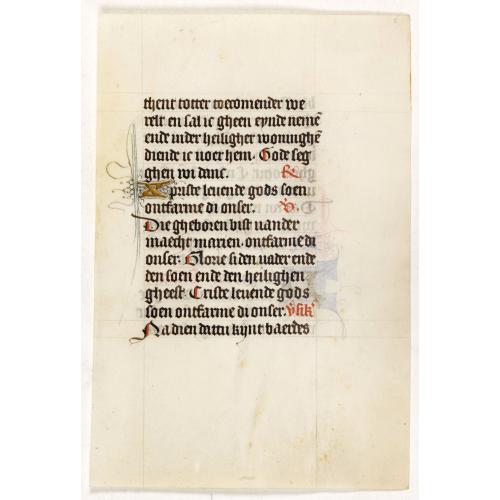 thent totter toecomender we
relt en sal ic gheen eynde nemē
ende inder heiligher woninghē
diende ic voer hem. Gode seg
ghen wi danc. R
Xpriste levende gods soen
ontfarme di onser. V
Die gheboren bist vander
maecht marien. ontfarme di
onser. Glorie si den vader ende
den soen ende den heilighen
gheest. Criste levende gods
soen ontfarme di onser. v̄sik'
Na dien dattu kynt baerdes